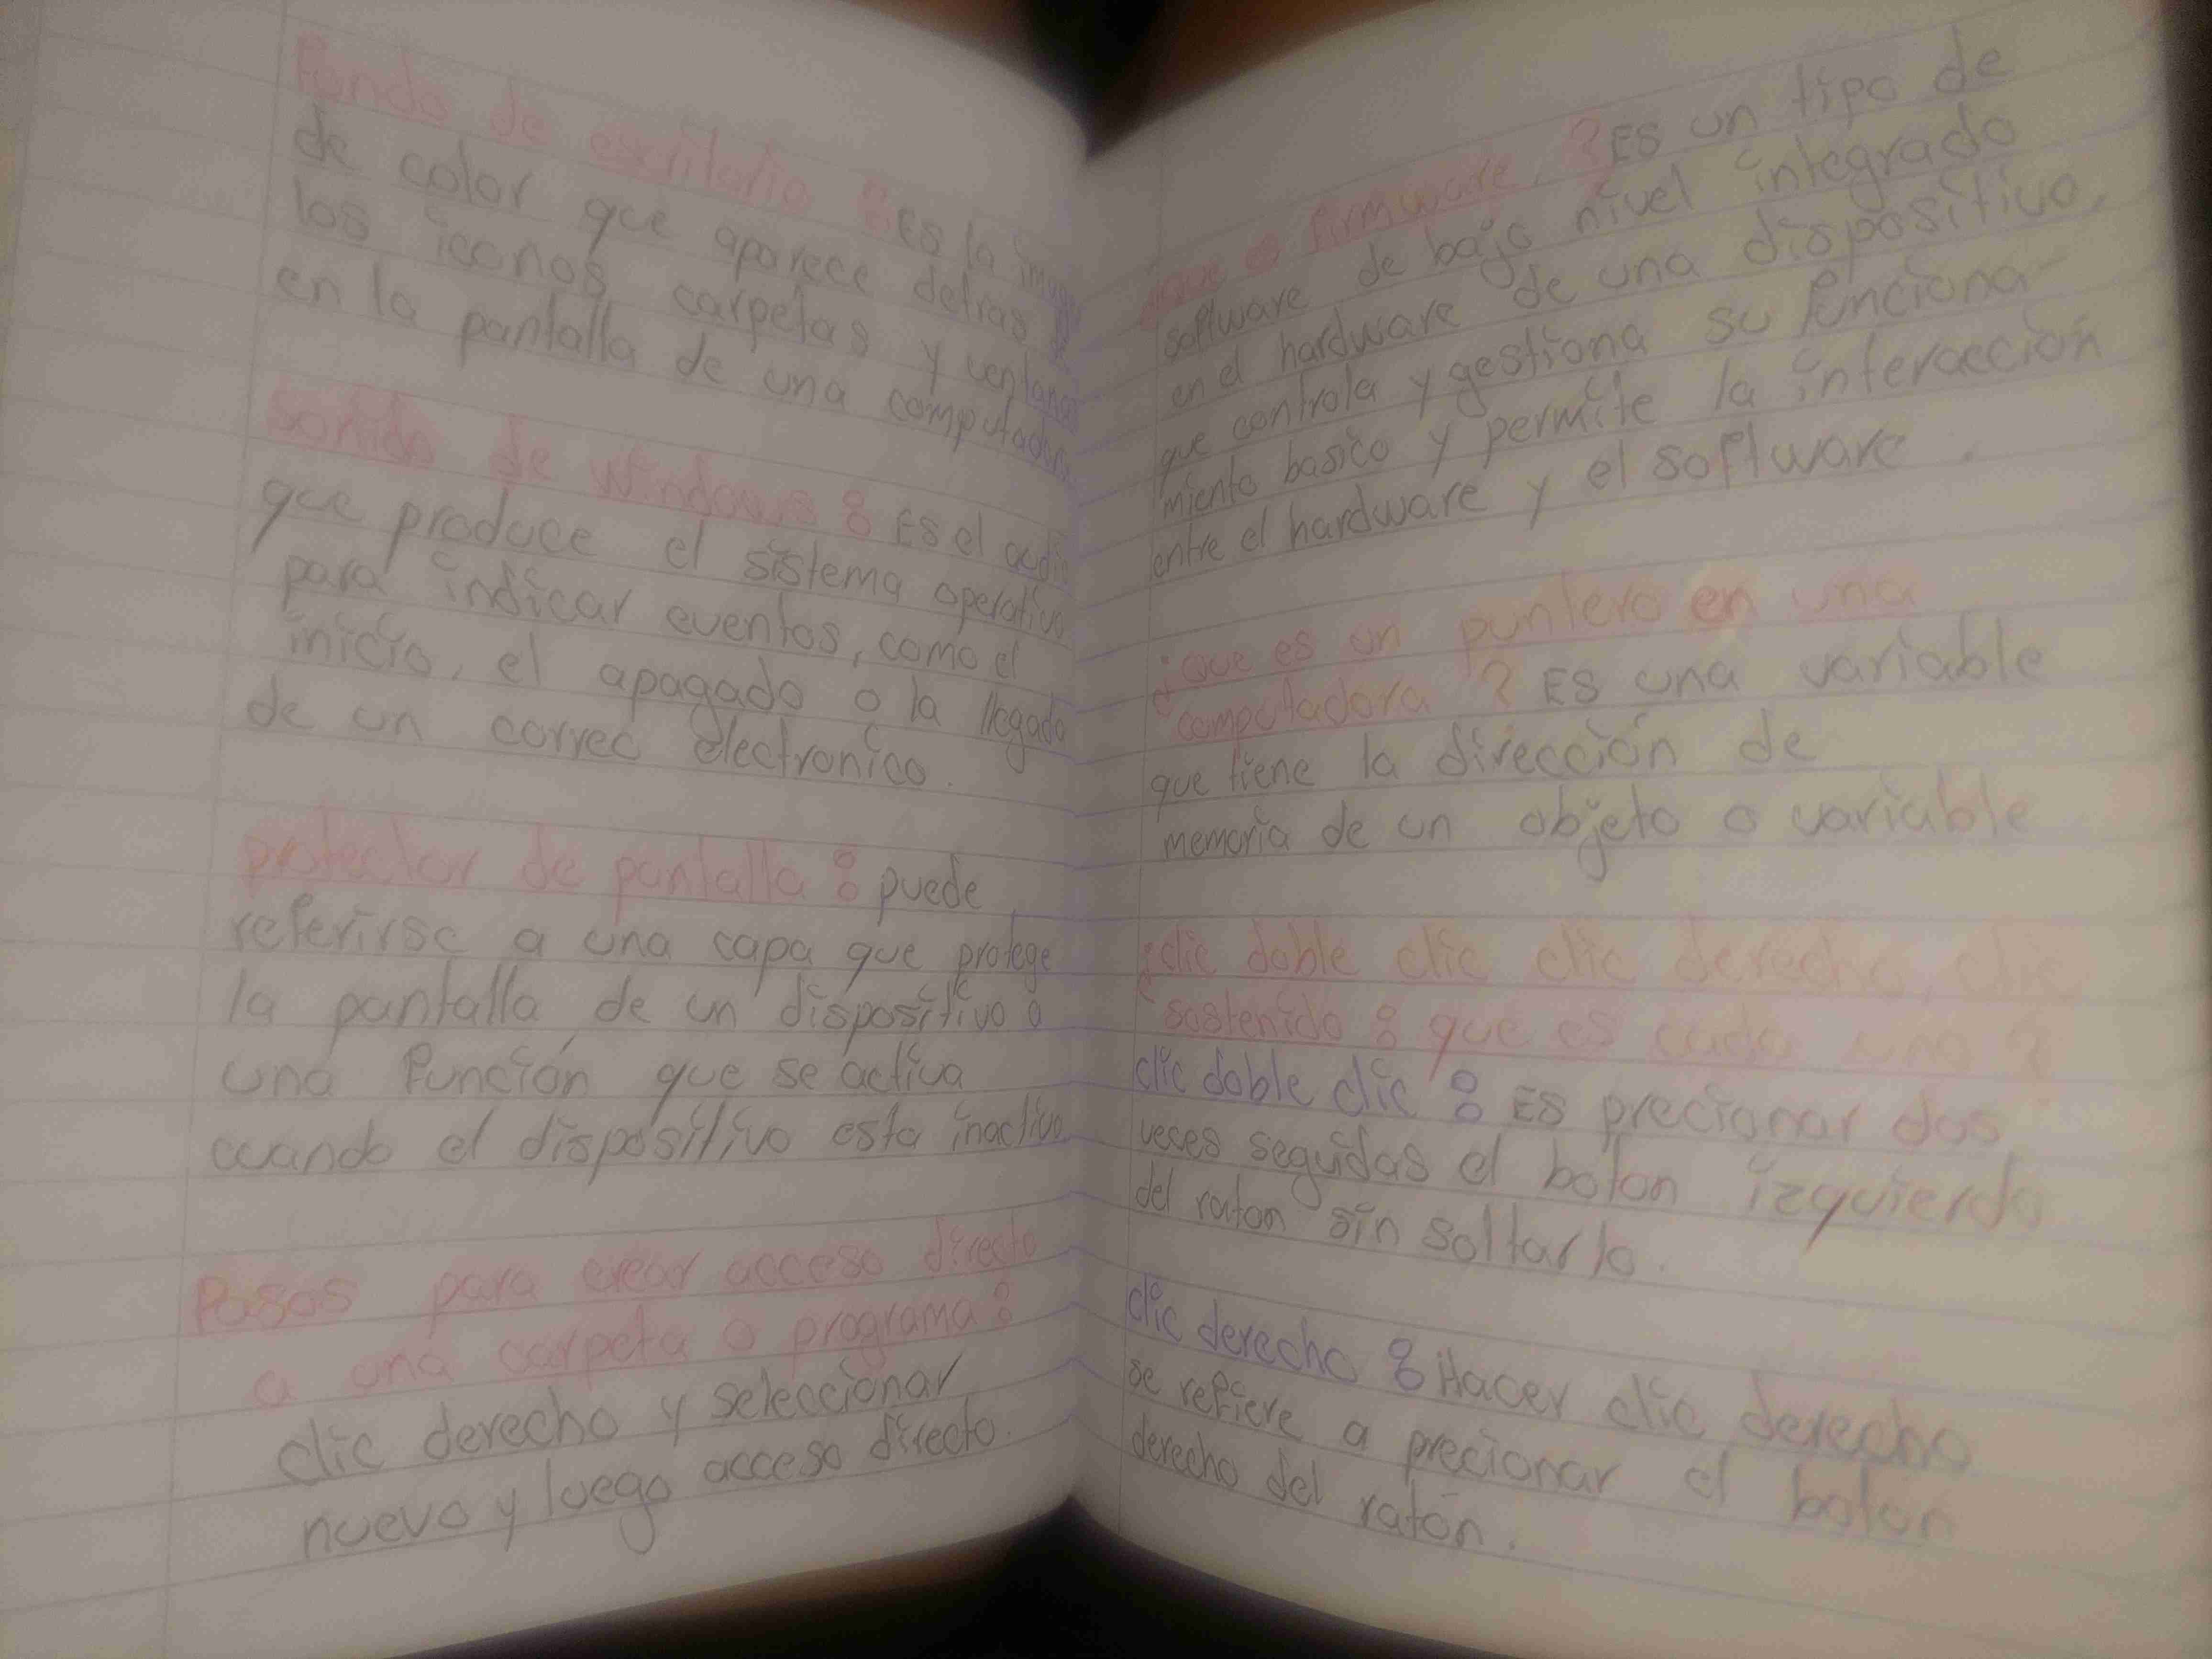 Fondo de escritorio : es la imagen
de color que aparece detras de
los iconos carpetas y ventanas
en la pantalla de una computadora
Sonido de Windows : Es el audio
que produce el sistema operativo
para indicar eventos, como el
inicio, el apagado o la llegada
de un correo electronico.
protector de pantalla : puede
referirse a una capa que protege
la pantalla de un dispositivo o
una función que se activa
cuando el dispositivo esta inactivo
Pasos para crear acceso directo
a una carpeta o programa :
clic derecho y seleccionar
nuevo y luego acceso directo.
¿que es firmware,? Es un tipo de
software de bajo nivel integrado
en el hardware de una dispositivo,
que controla y gestiona su funciona-
miento basico y permite la interacción
entre el hardware y el software.
¿que es un puntero en una
computadora ? Es una variable
que tiene la dirección de
memoria de un objeto o variable
¿clic doble clic clic derecho, clic
sostenido : que es cada uno ?
clic doble clic : Es precionar dos
veces seguidas el boton izquierdo
del raton sin soltarlo.
clic derecho : Hacer clic derecho
se refiere a precionar el boton
derecho del ratón.